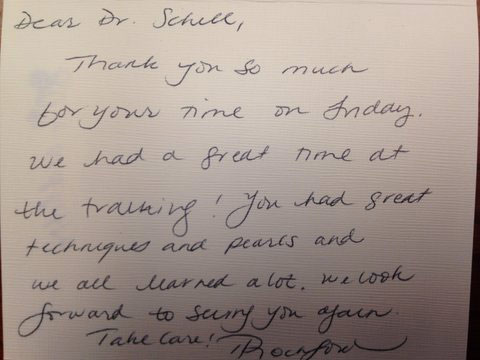 Dear Dr. Schell,
Thank you so much
for your time on Friday.
We had a great time at
the training! You had great
techniques and pearls and
we all learned a lot. We look
forward to seeing you again.
Take Care!